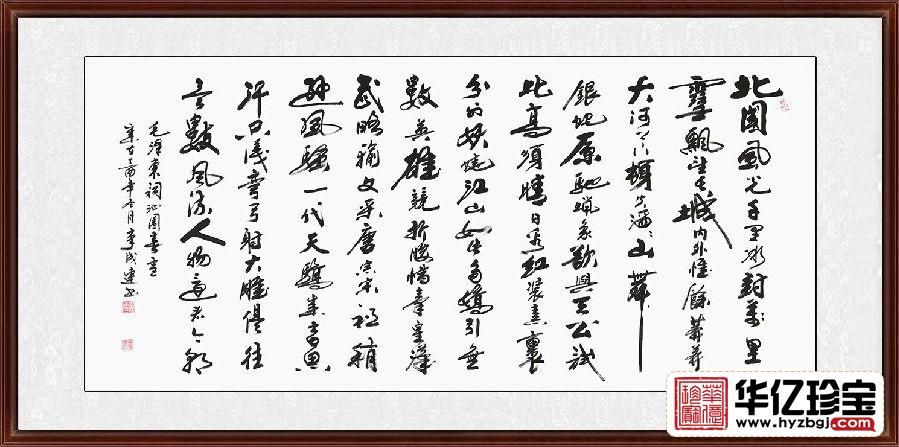 北國風光千里冰封萬里
雪飄望長城內外惟餘莽莽
大河上下頓失滔滔山舞
銀蛇原馳蠟象欲與天公試
比高須晴日看紅裝素裹
分外妖嬈江山如此多嬌引無
數英雄競折腰惜秦皇漢
武略輸文采唐宗宋祖稍
遜風騷一代天驕成吉思
汗只識彎弓射大雕俱往
矣數風流人物還看今朝
毛澤東詞沁園春雪
年冬月李成連書
华亿珍宝
www.hyzbgj.com